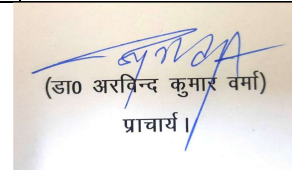 (डा0 अरविन्द कुमार वर्मा)
प्राचार्य।